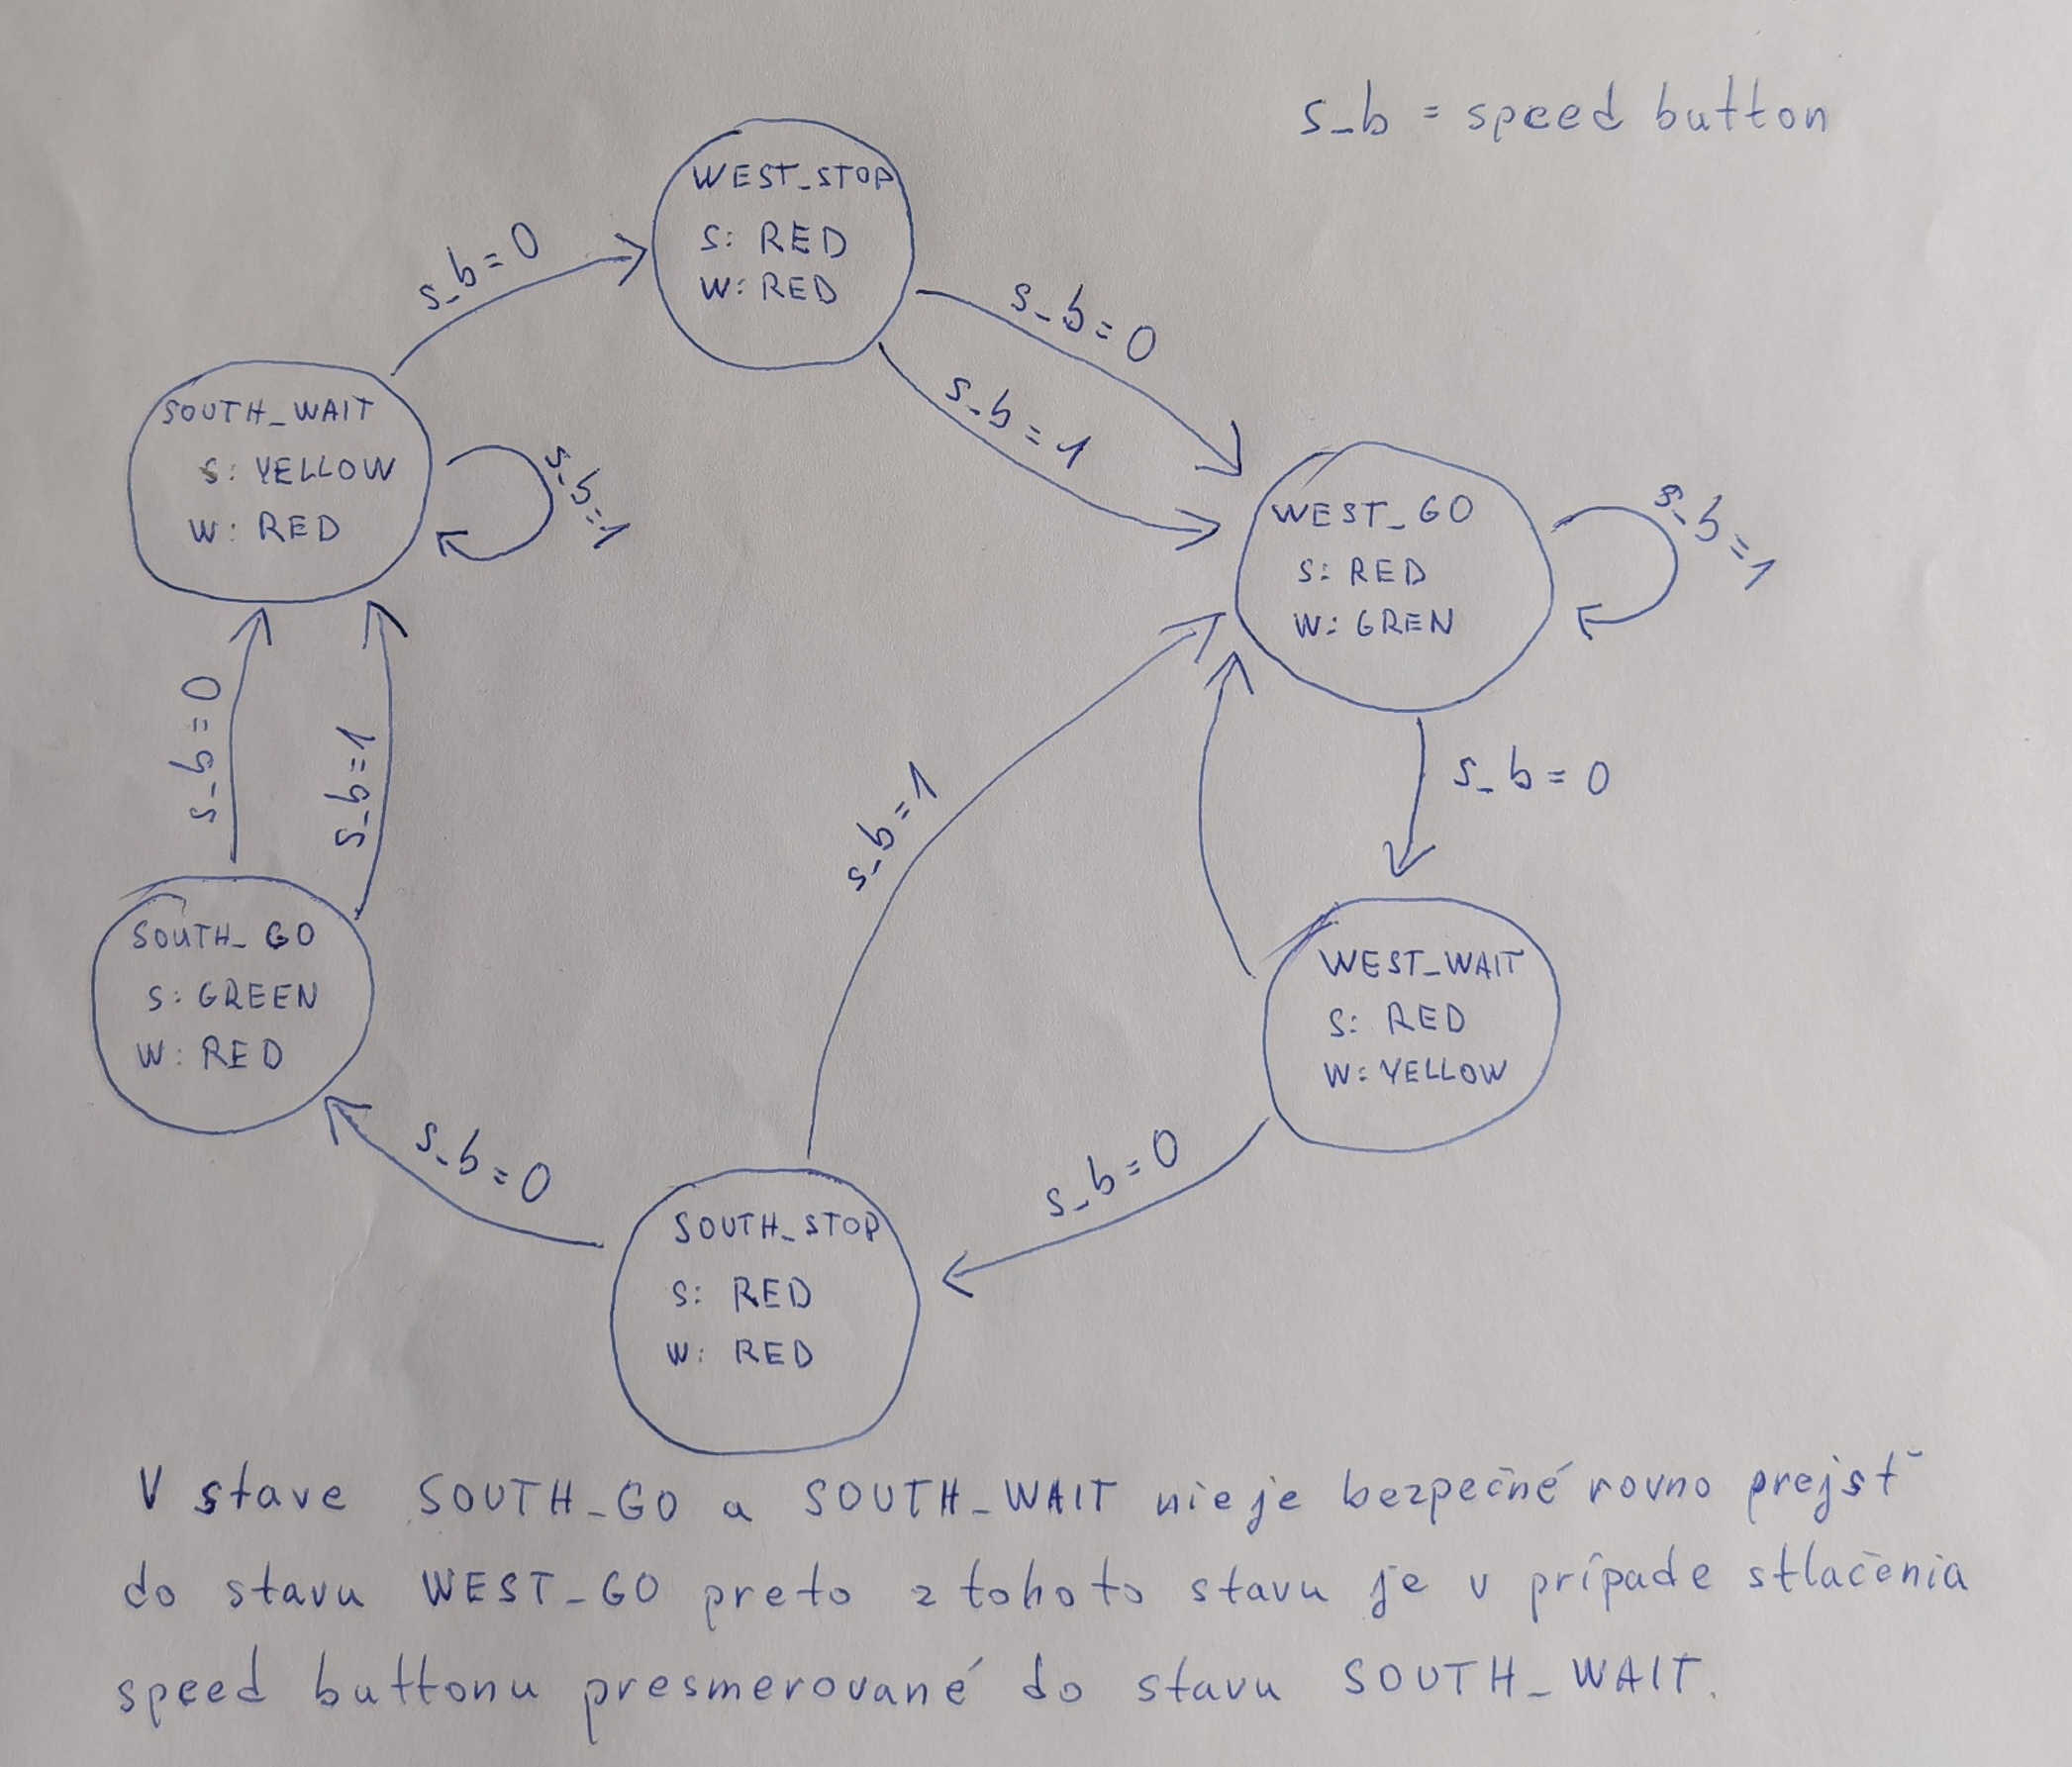 s_b = speed button
WEST_STOP
S: RED
W: RED
s_b=0
s_b=0
s_b=1
SOUTH_WAIT
S: YELLOW
W: RED
s_b=1
WEST_GO
S: RED
W: GREN
s_b=1
s_b=0
s_b=1
s_b=1
s_b=0
SOUTH_GO
S: GREEN
W: RED
WEST_WAIT
S: RED
W: YELLOW
s_b=0
s_b=0
SOUTH_STOP
S: RED
W: RED
V stave SOUTH_GO a SOUTH_WAIT nieje bezpečné rovno prejsť
do stavu WEST_GO preto z tohoto stavu je v prípade stlačenia
speed buttonu presmerované do stavu SOUTH_WAIT.